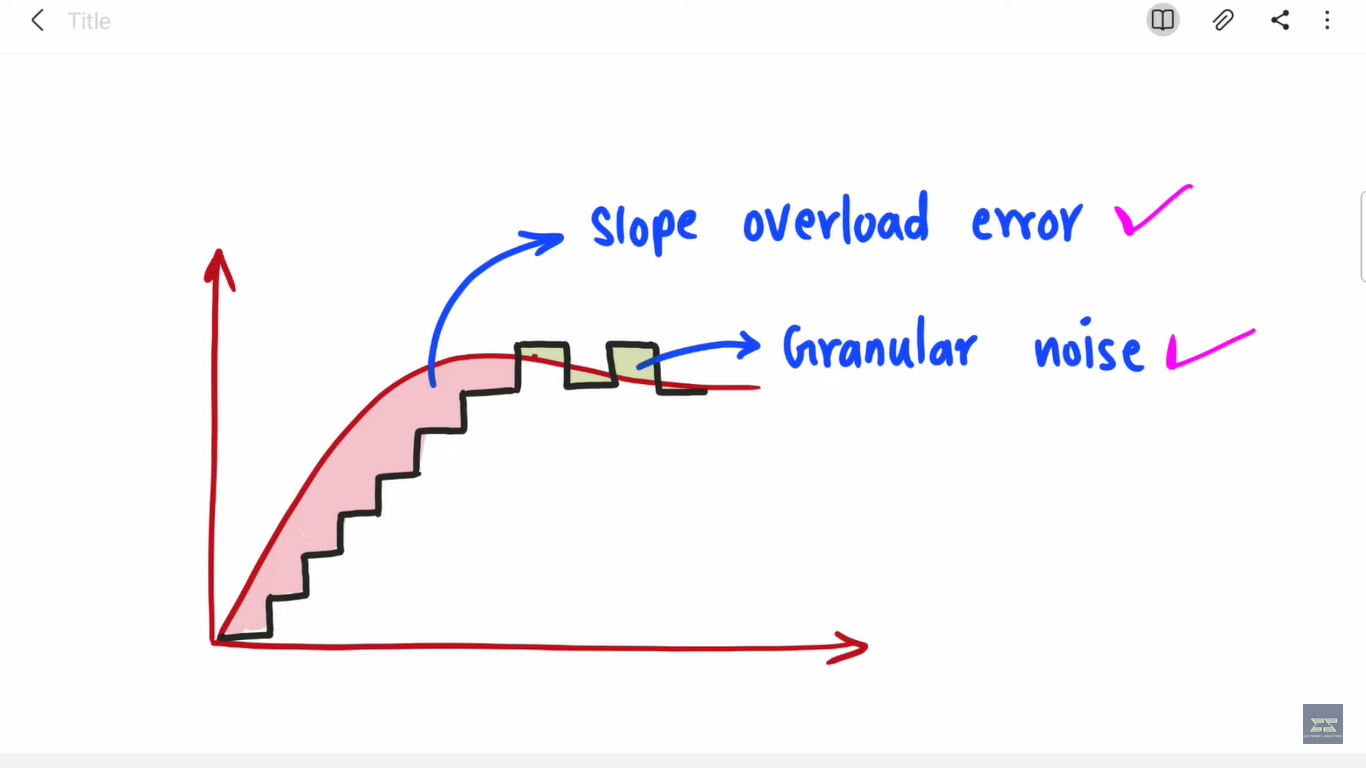 Title
Slope overload error
Granular noise